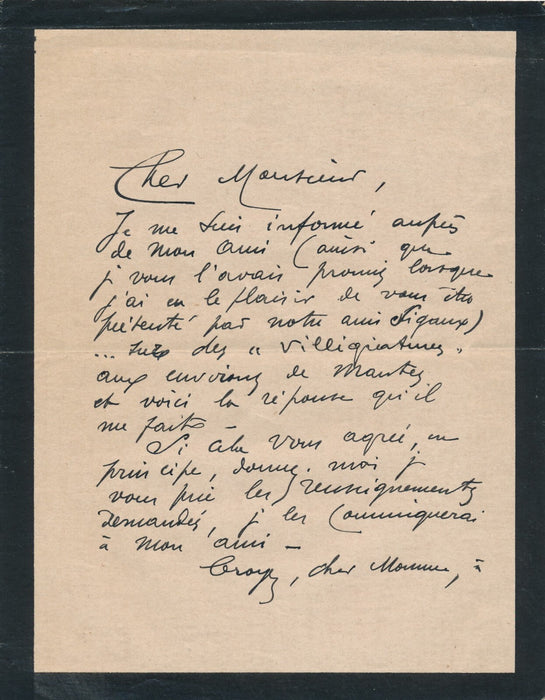 Cher Monsieur,
Je me suis informé auprès
de mon ami (ainsi que
je vous l'avais promis lorsque
j'ai eu le plaisir de vous être
présenté par notre ami Sigaux)
... sur des "villégiatures"
aux environs de Mantes
et voici la réponse qu'il
me fait -
Si cela vous agrée, en
principe, donnez-moi je
vous prie les renseignements
demandés, je les communiquerai
à mon ami -
Croyez, cher Monsieur, à